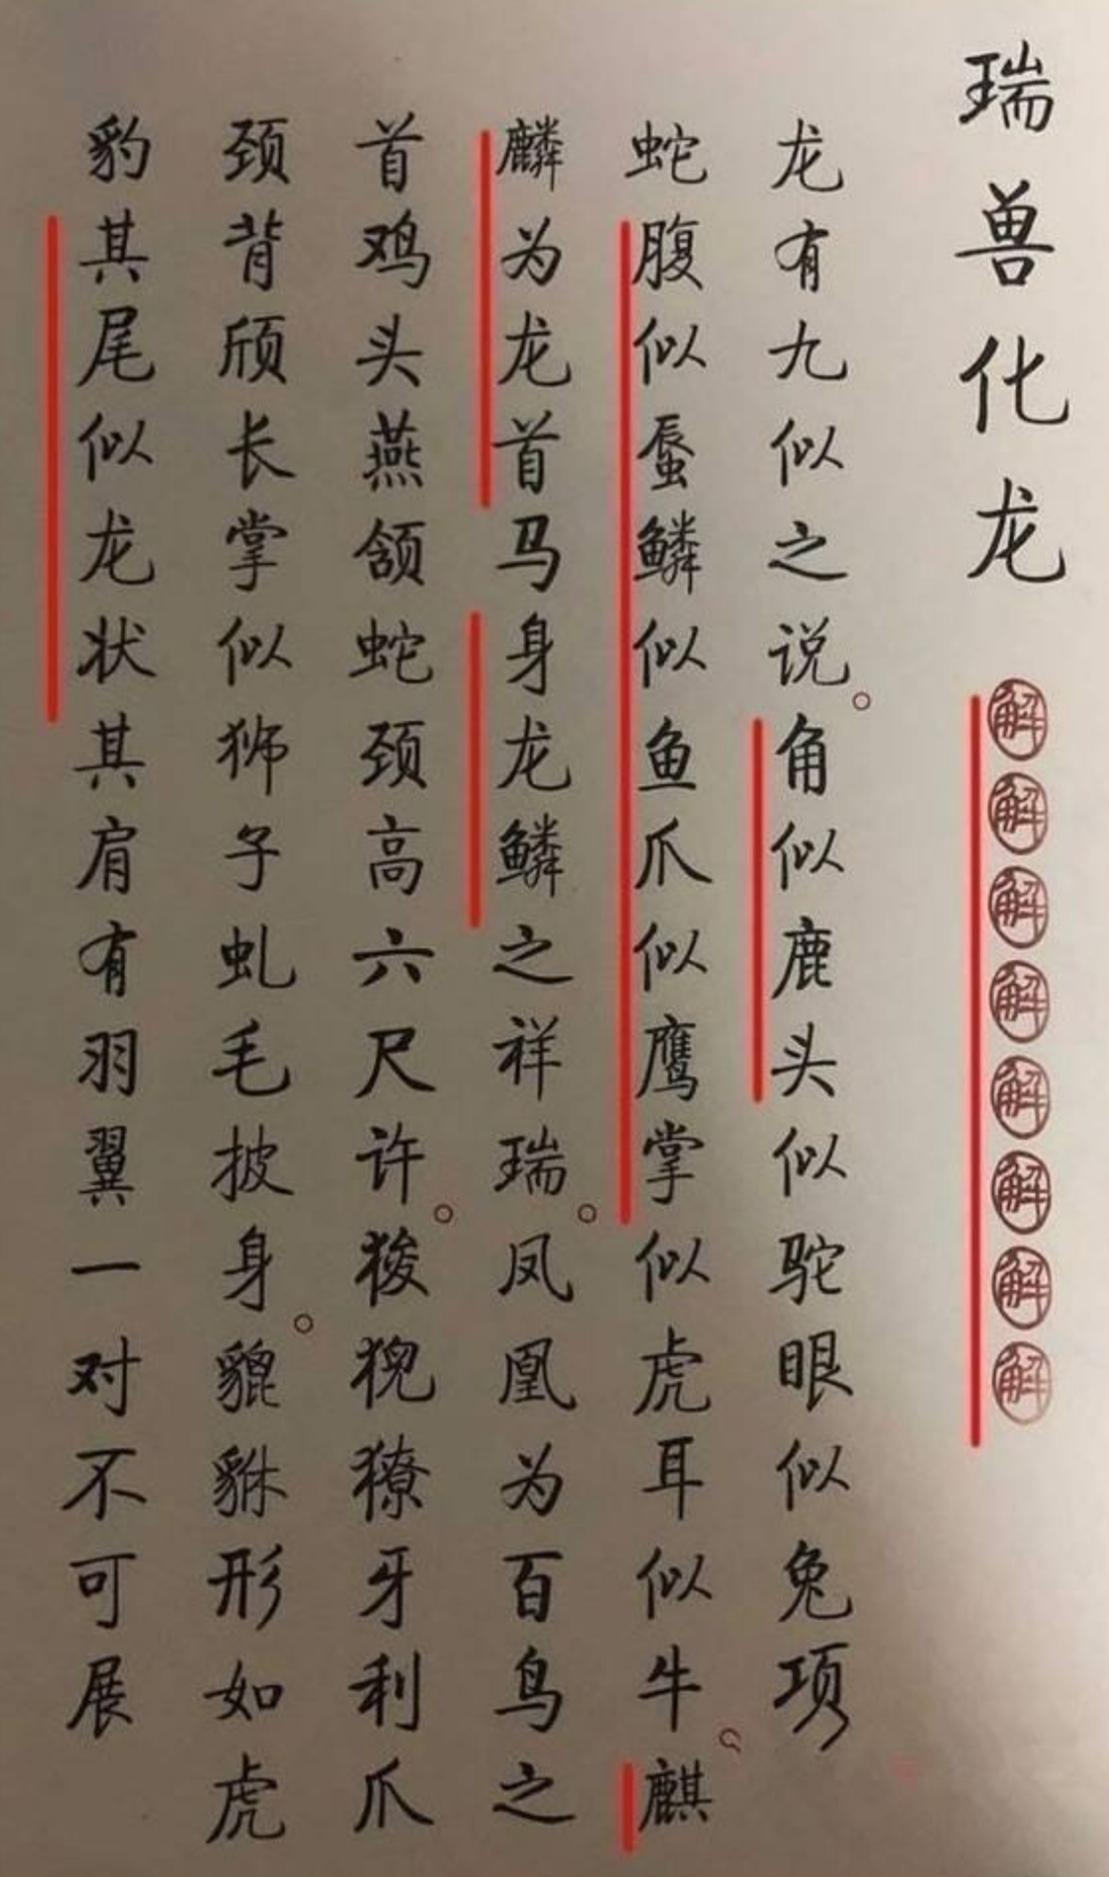 瑞兽化龙 解解解解解解解解
龙有九似之说。角似鹿头似驼眼似兔项
蛇腹似蜃鳞似鱼爪似鹰掌似虎耳似牛。麒
麟为龙首马身龙鳞之祥瑞。凤凰为百鸟之
首鸡头燕颔蛇颈高六尺许。狻猊獠牙利爪
颈背颀长掌似狮子虬毛披身。貔貅形如虎
豹其尾似龙状其肩有羽翼一对不可展